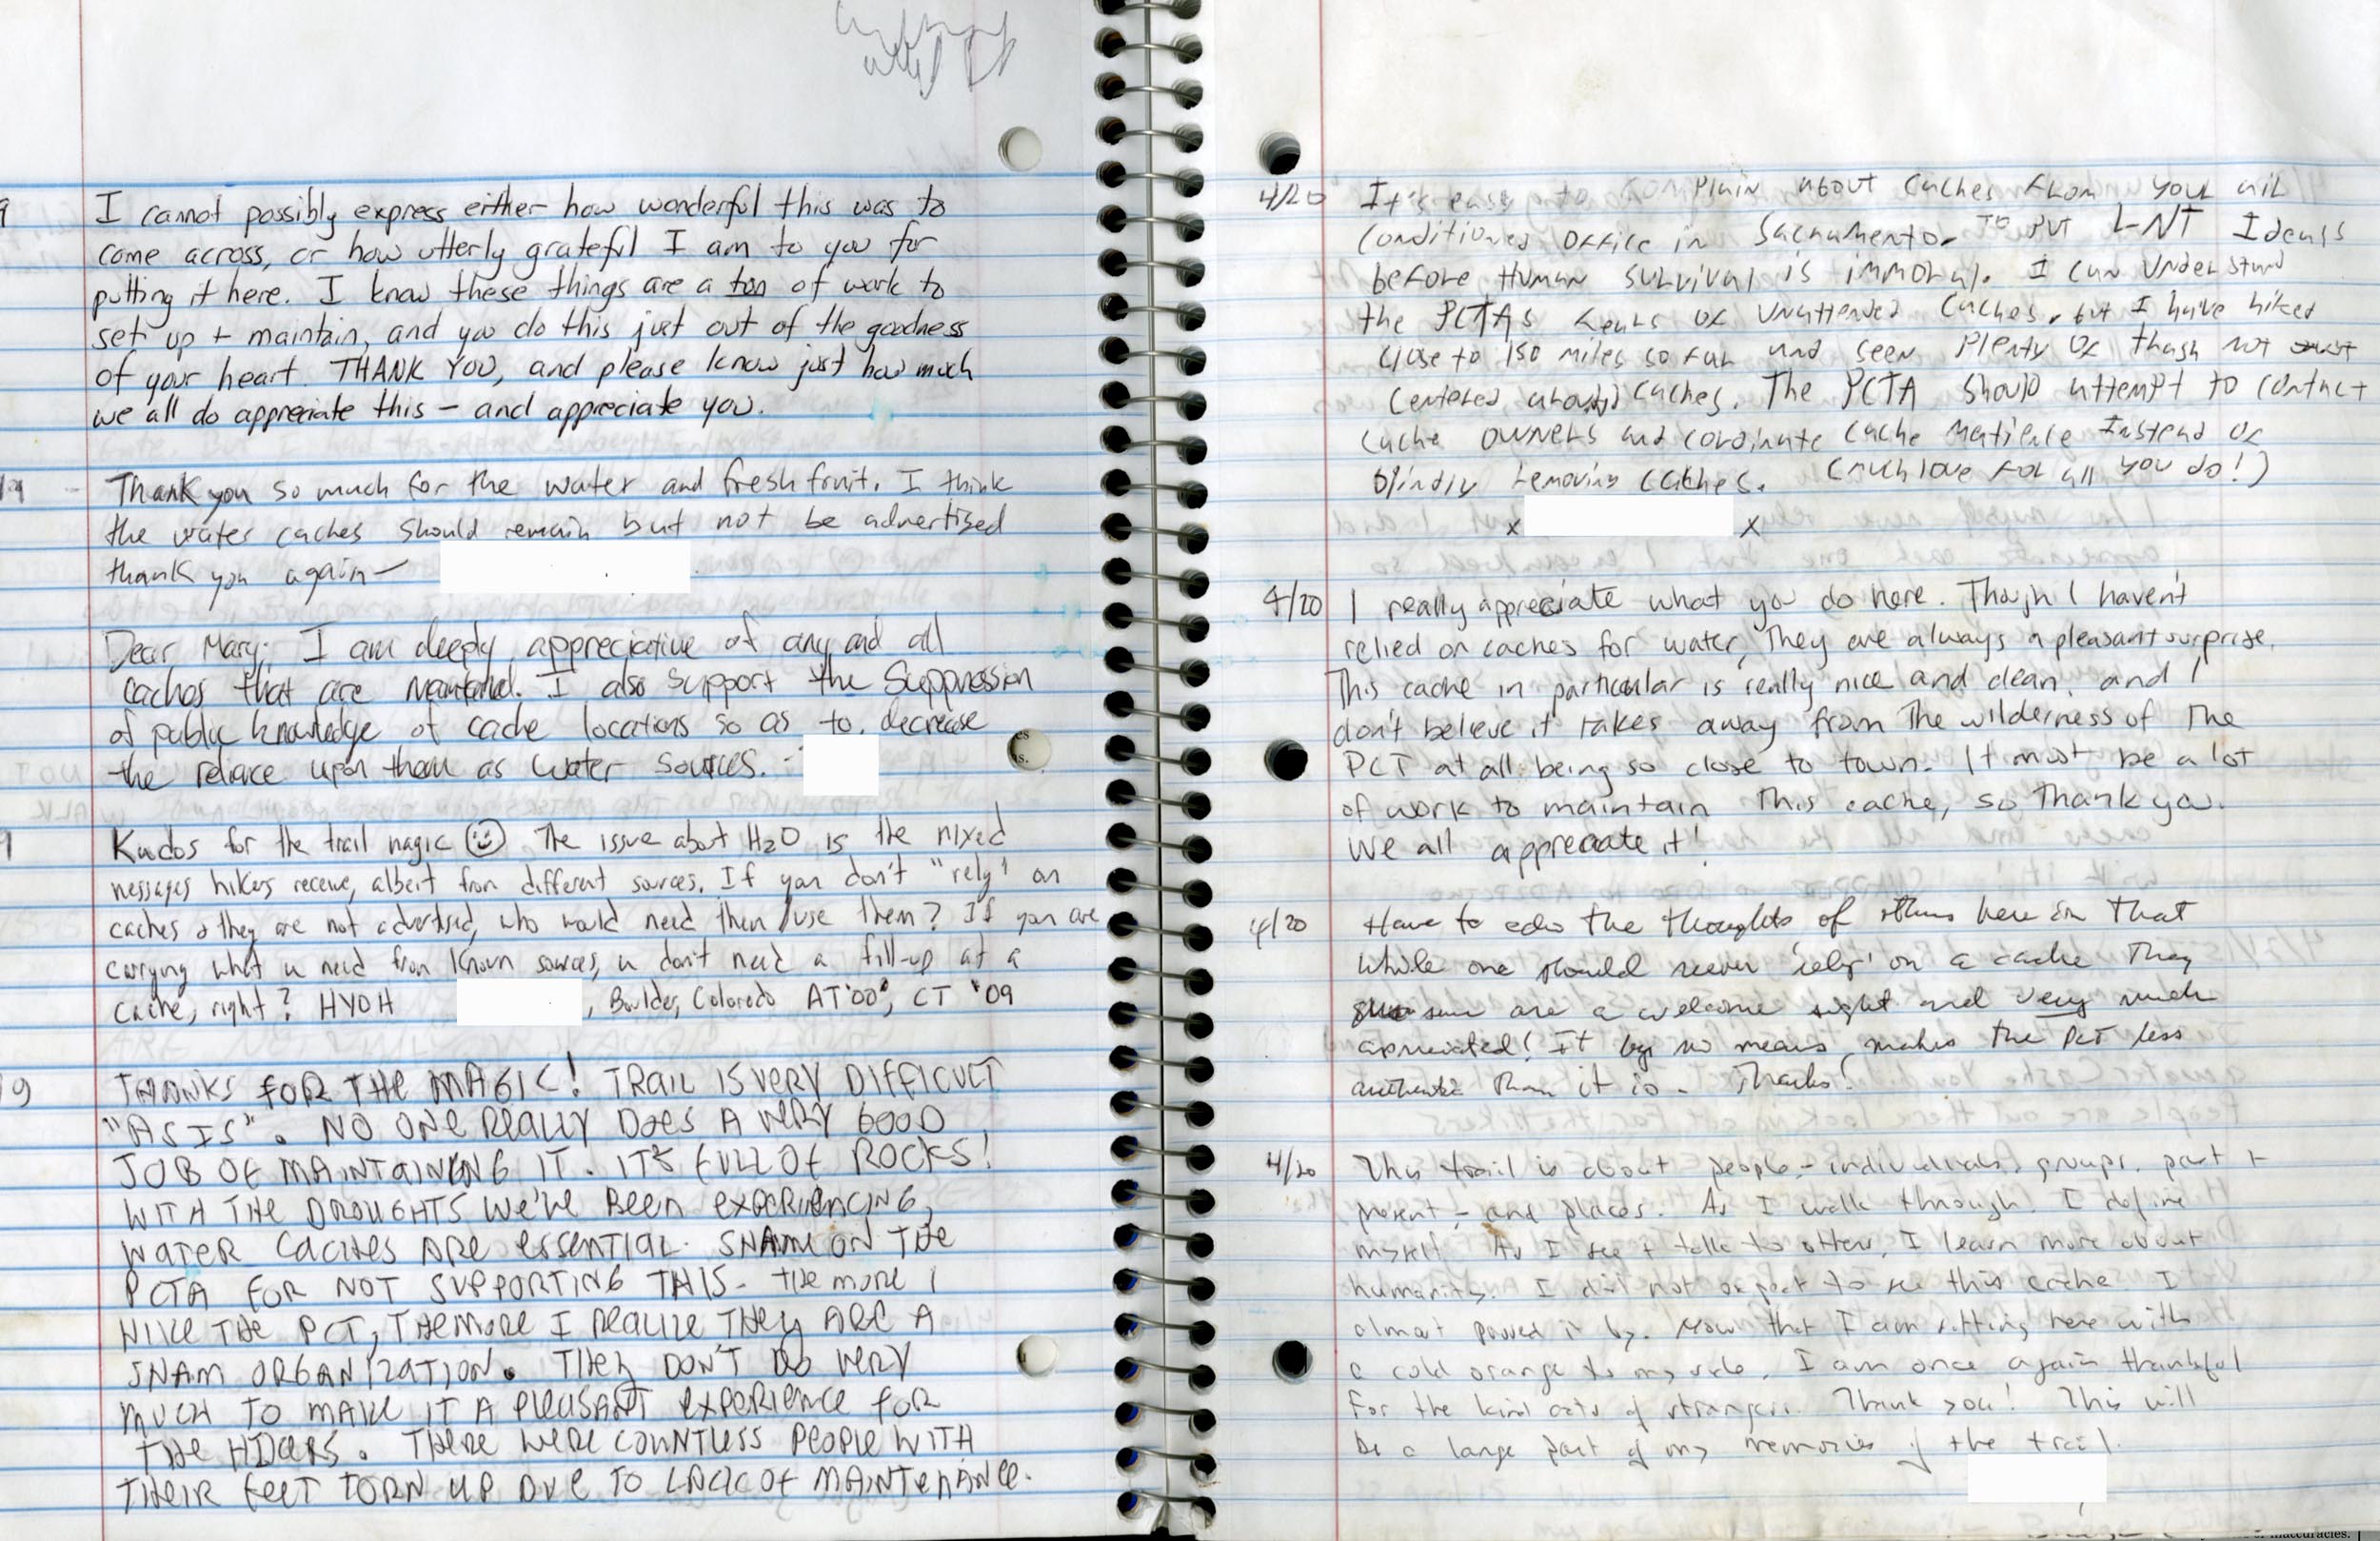 9
I cannot possibly express either how wonderful this was to
come across, or how utterly grateful I am to you for
putting it here. I know these things are a ton of work to
set up + maintain, and you do this just out of the goodness
of your heart. THANK YOU, and please know just how much
we all do appreciate this - and appreciate you.
19 - Thank you so much for the water and fresh fruit. I think
the water caches should remain but not be advertized
thank you again-
Dear Mary: I am deeply appreciative of any and all
caches that are maintained. I also support the Suppression
of public knowledge of cache locations so as to decrease
the reliace upon them as water sources. -
9
Kudos for the trail magic The issue about H2O is the mixed
messages hikers receive, albeit from different sources. If you don't "rely" on
caches & they are not advertised, who would need them/use them? If you are
carrying what u need from known sources, u don't need a fill-up at a
cache, right? HYOH , Boulder, Colorado AT'00', CT '09
19 THANKS FOR THE MAGIC! TRAIL IS VERY DIFFICULT
"AS IS". NO ONE REALLY DOES A VERY GOOD
JOB OF MAINTAINING IT. IT'S FULL OF ROCKS!
WITH THE DROUGHTS WE'VE BEEN EXPERIENCING,
WATER CACHES ARE ESSENTIAL. SHAME ON THE
PCTA FOR NOT SUPPORTING THIS- THE MORE I
HIKE THE PCT, THE MORE I REALIZE THEY ARE A
SHAM ORGANIZATION. THEY DON'T DO VERY
MUCH TO MAKE IT A PLEASANT EXPERIENCE FOR
THE HIKERS. THERE WERE COUNTLESS PEOPLE WITH
THEIR FEET TORN UP DUE TO LACK OF MAINTENANCE.
es
s.
4/20 It's easy to complain about caches from your air
conditioned office in Sacramento. To put LNT Ideals
before Human survival is immoral. I can understand
the PCTAs fears of unattended caches, but I have hiked
close to 150 miles so far and seen plenty of trash not
centered around caches. The PCTA should attempt to contact
cache owners and cordinate cache Instead of
blindly removing caches. (much love for all you do!)
x x
4/20 I really appreciate what you do here. Though I haven't
relied on caches for water, they are always a pleasant surprise.
This cache in particular is really nice and clean, and I
don't believe it takes away from the wilderness of the
PCT at all being so close to town. It must be a lot
of work to maintain this cache, so thank you.
We all appreciate it!
4/20 Have to echo the thoughts of others here in that
while one should never 'rely' on a cache they
sure are a welcome sight and very much
appreciated! It by no means makes the PCT less
authentic than it is. Thanks!
4/20 This trail is about people - individuals, groups, past +
present - and places. As I walk through, I define
myself. As I see + talk to others, I learn more about
humanity. I did not expect to see this cache. I
almost passed it by. Now that I am sitting here with
a cold orange to my side, I am once again thankful
for the kind acts of strangers. Thank you! This will
be a large part of my memories of the trail.
inaccuracies.